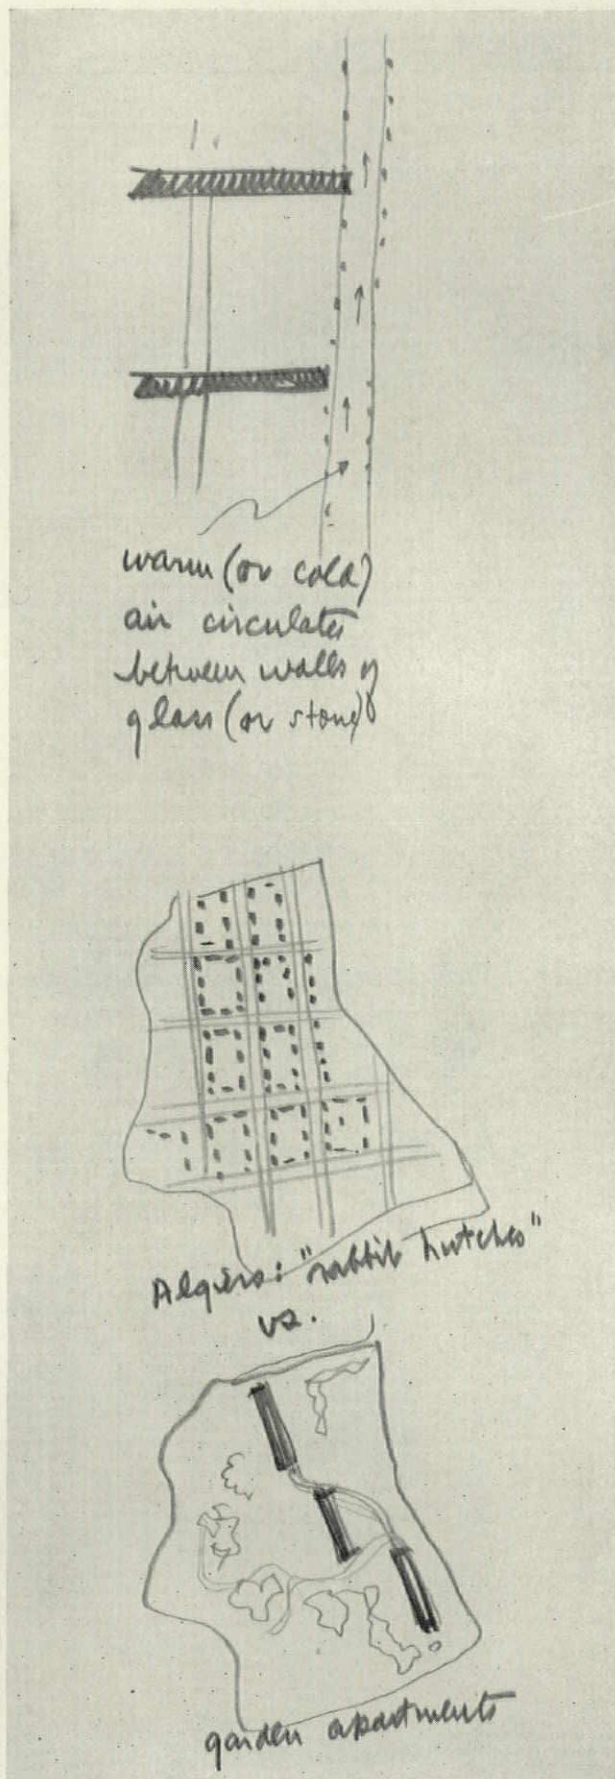 warm (or cold)
air circulates
between walls of
glass (or stone)
Algiers: "rabbit hutches"
vs.
garden apartments